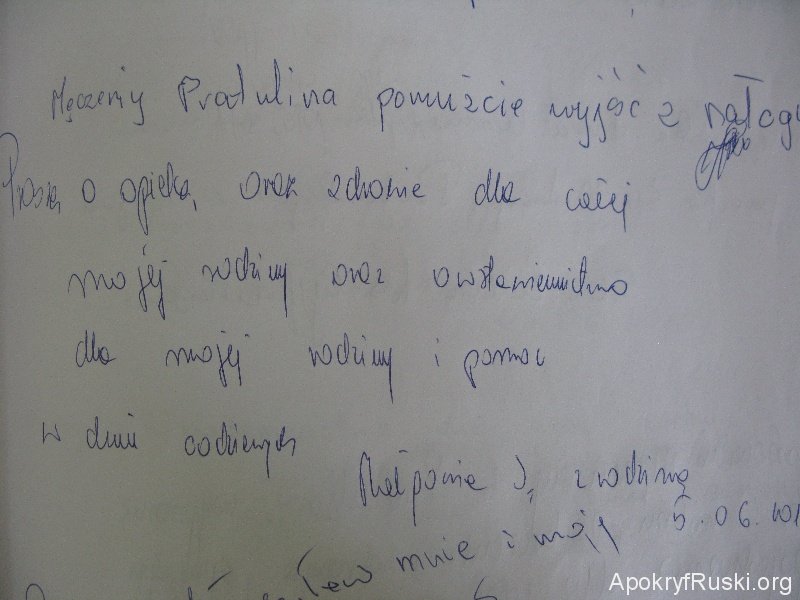 Męczenicy Pratulina pomużcie wyjść z nałogu
Proszę o opiekę, oraz zdrowie dla całej
mojej rodziny oraz owstawiennictwo
dla mojej rodziny i pomoc
w dniu codziennych
z rodziną
mnie i moją 5.06.
ApokryfRuski.org